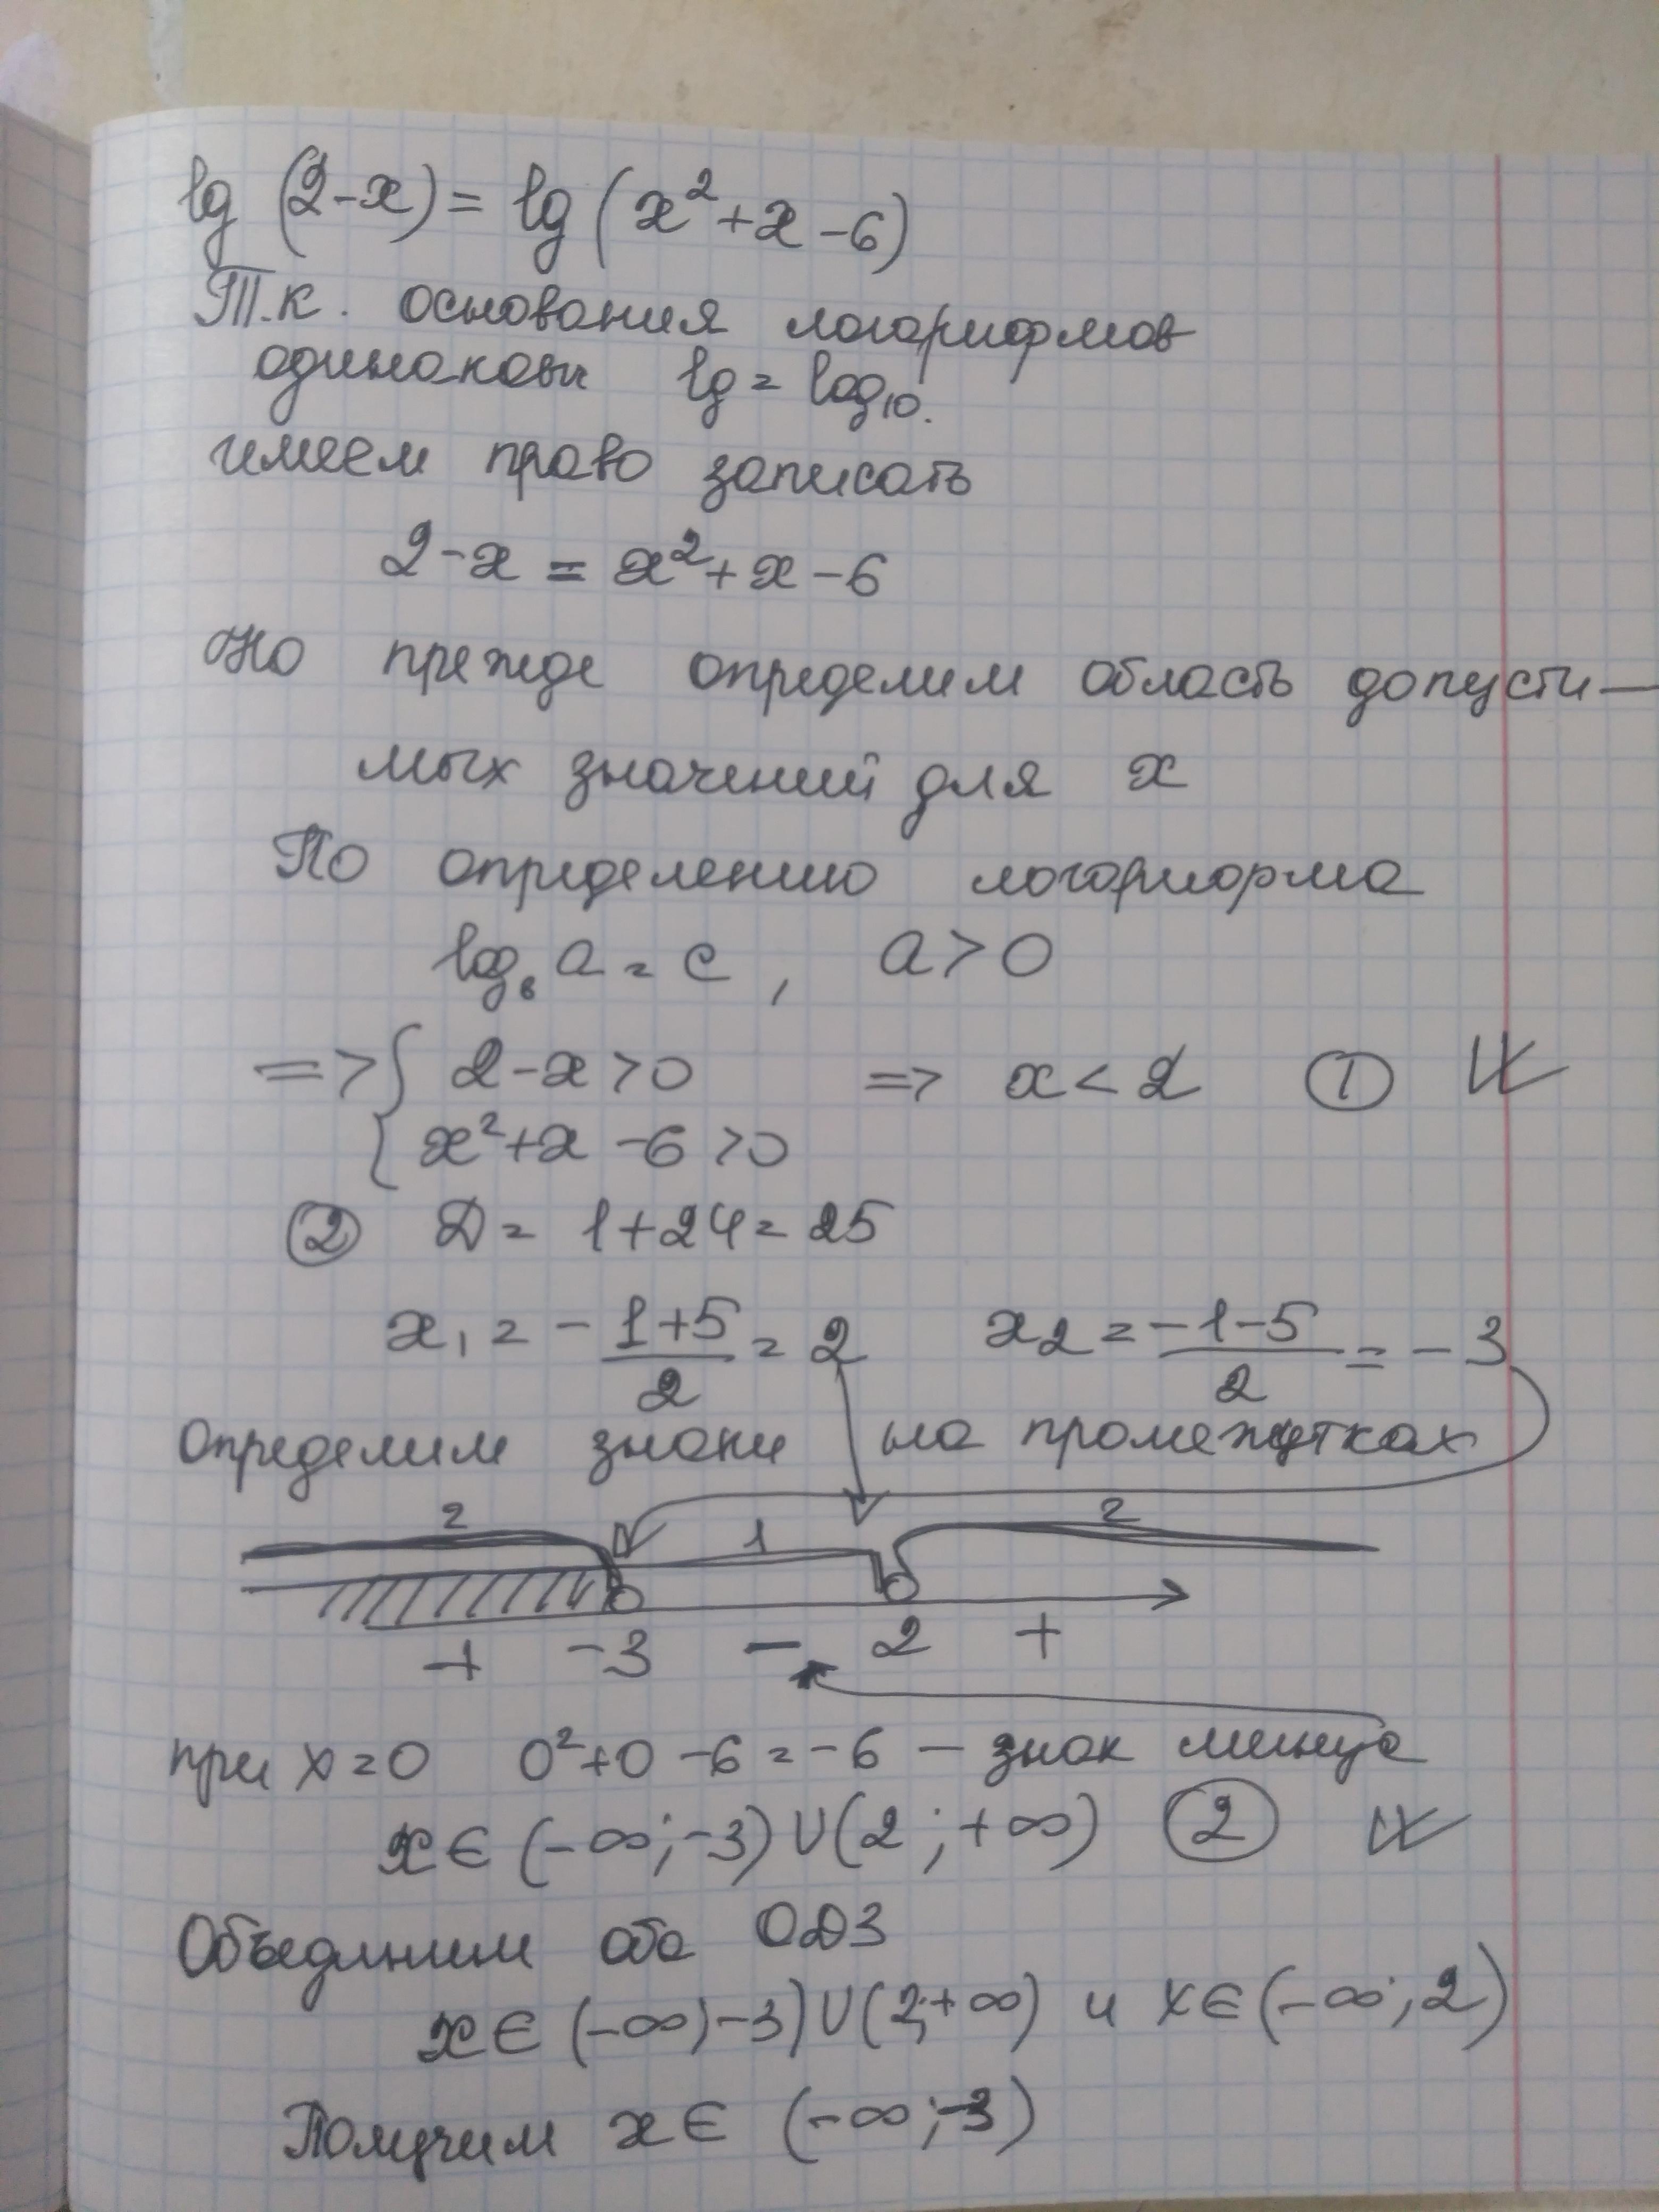 lg (2-x) = lg (x²+x-6)
Т.к. основания логарифмов
одинаковы lg = log₁₀.
имеем право записать
2-x = x²+x-6
Но прежде определим область допусти-
мых значений для x
По определению логарифма
log_в a = c , a > 0
=> { 2-x > 0 => x < 2 ①
{ x²+x-6 > 0
② D = 1+24 = 25
x₁ = -1+5/2 = 2 x₂ = -1-5/2 = -3
Определим знаки на промежутках
2 1 2
+ -3 - 2 +
при x = 0 0²+0-6 = -6 – знак минус
x ∈ (-∞; -3) ∪ (2; +∞) ②
Объединим оба ОДЗ
x ∈ (-∞; -3) ∪ (2; +∞) и x ∈ (-∞; 2)
Получим x ∈ (-∞; -3)